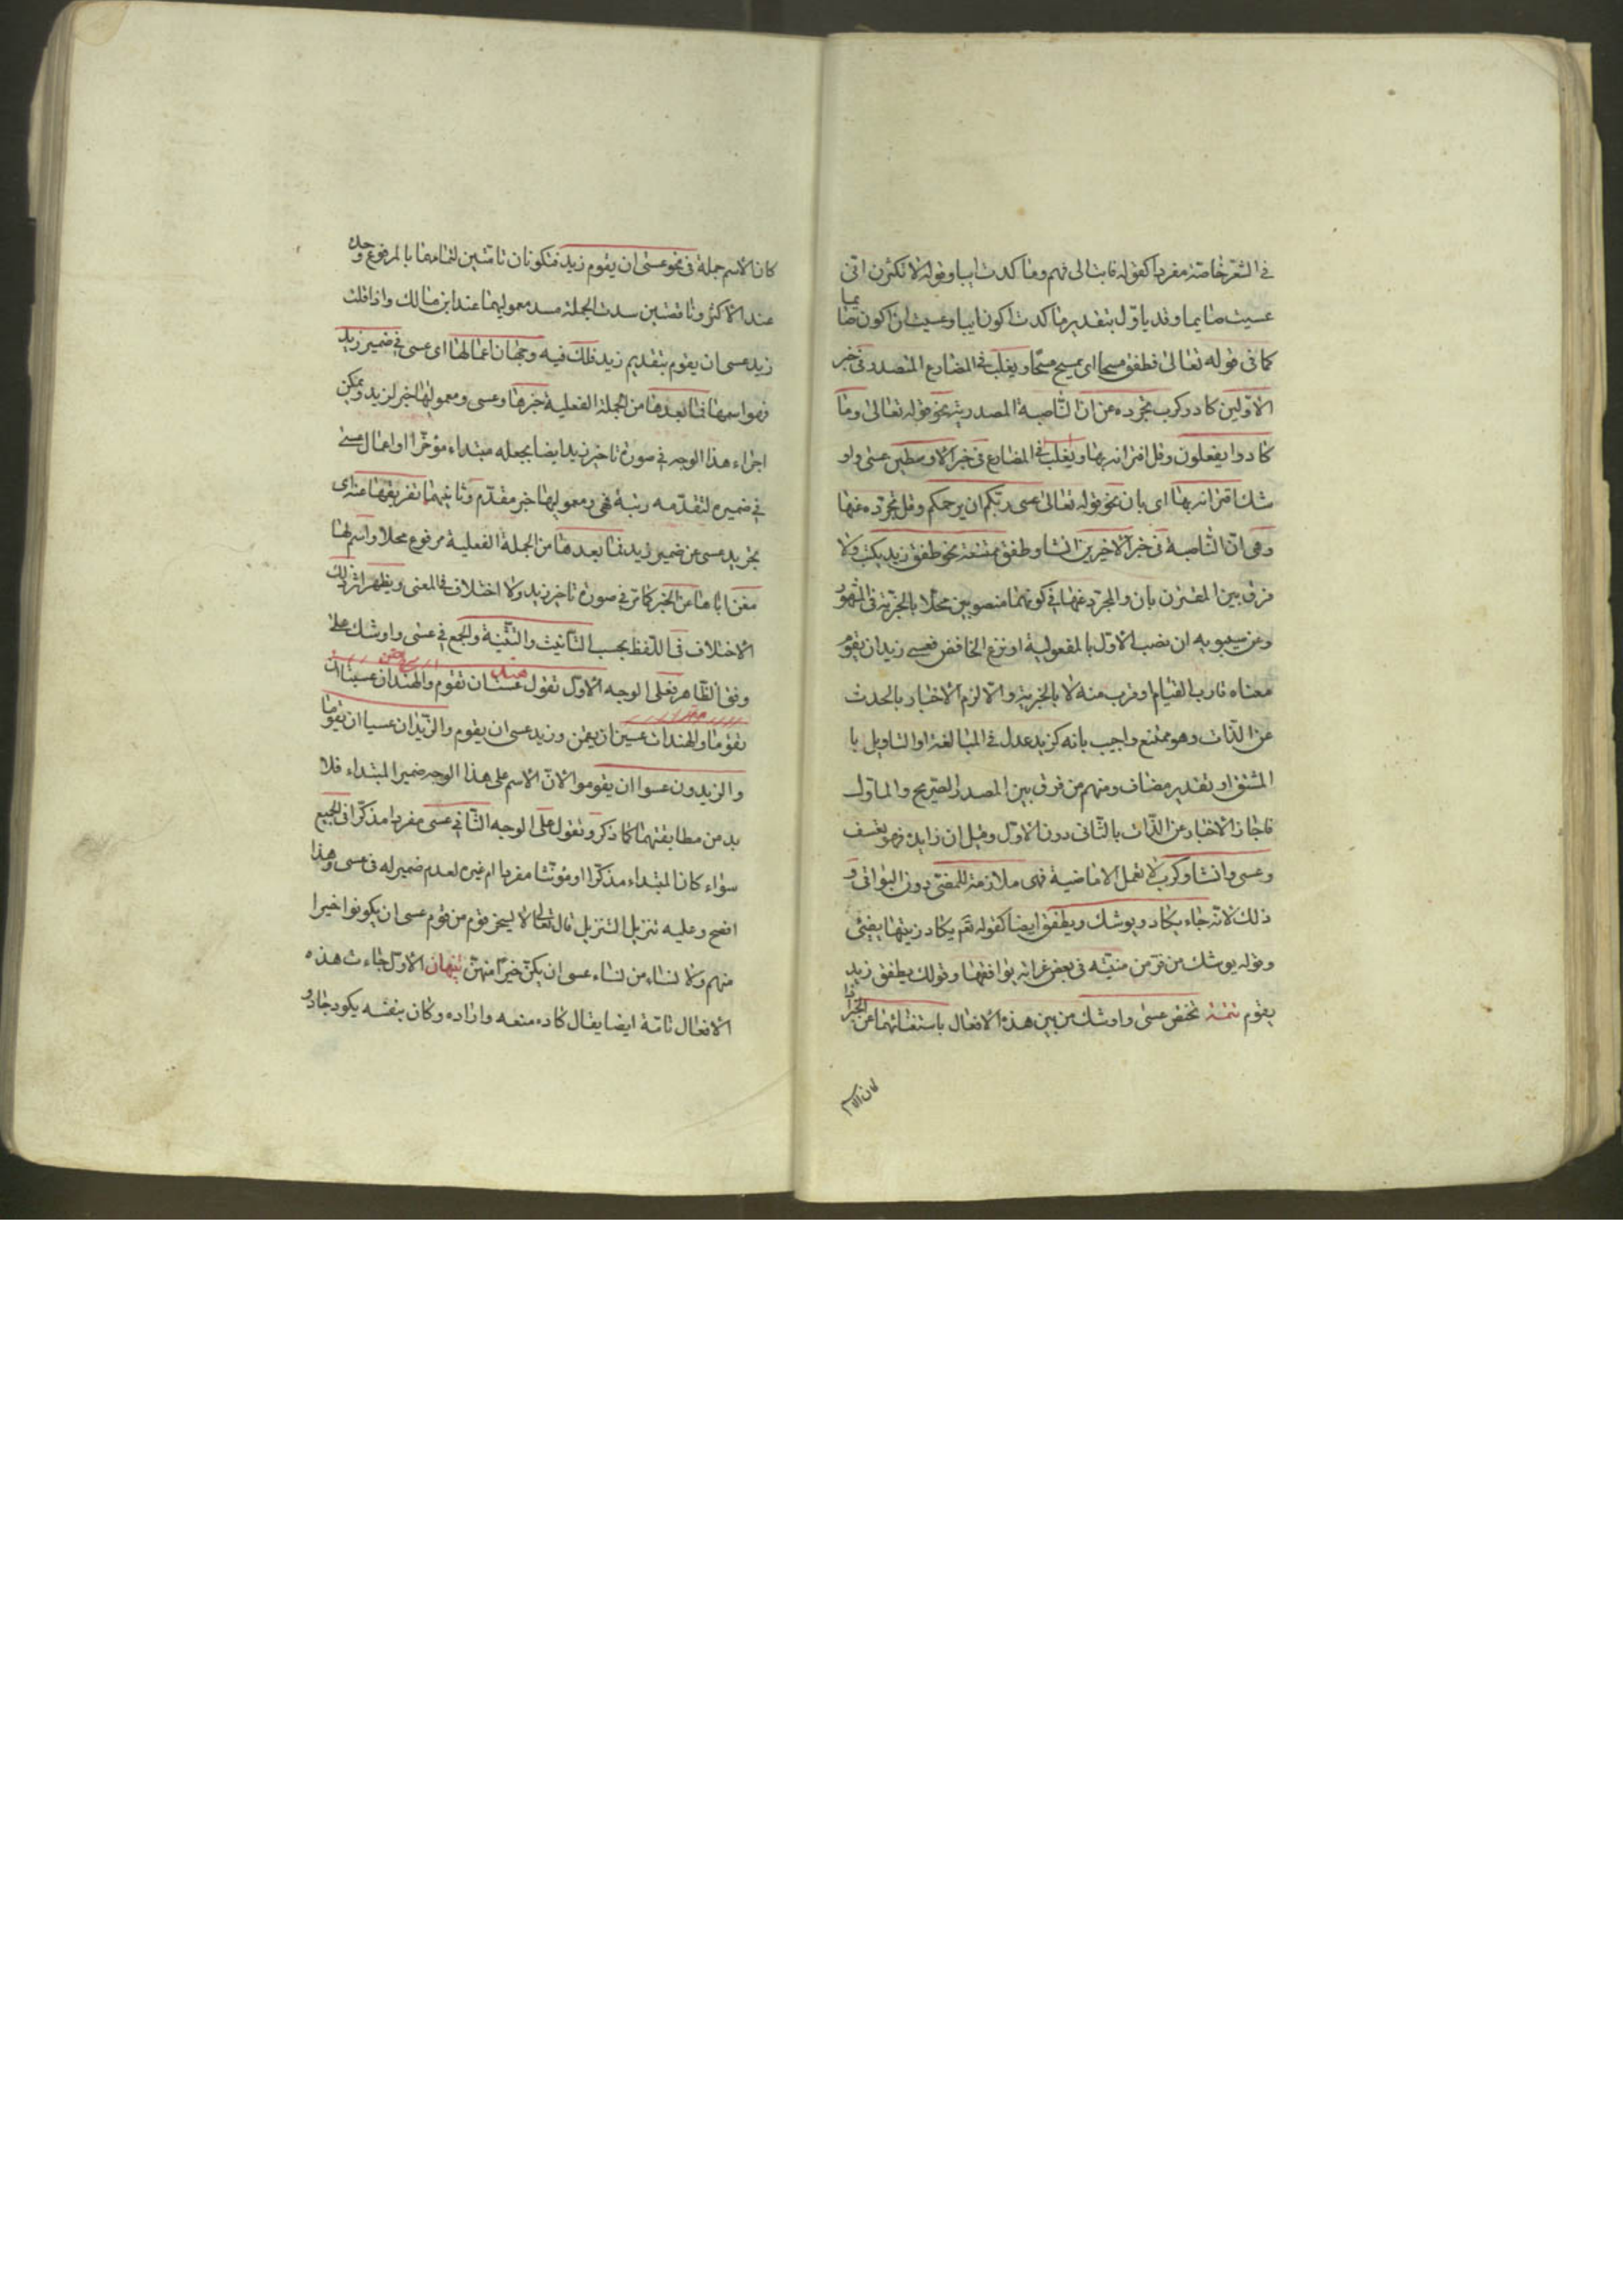 في الشعر خاصة مفردا كقوله فابت الى فهم وما كدت ايبا وقوله لا تكثرن اني
عسيت صايما وقد ياول بتقدير ما كدت اكون ايبا وعسيت ان اكون صايما
كما في قوله تعالى فطفق مسحا اي يمسح مسحا ويغلب في المضارع المتصدر في خبر
الاولين كاد وكرب تجرده عن ان الناصبة المصدرية نحو قوله تعالى وما
كادوا يفعلون وقل اقترانه بها ويغلب في المضارع في خبر الاوسطين عسى واو
شك اقترانه بها اي بان نحو قوله تعالى عسى ربكم ان يرحمكم وقل تجرده عنها
وهي ان الناصبة في خبر الاخرين انشا وطفق ممتنعة نحو طفق زيد يكتب ولا
فرق بين المقترن بان والمجرد عنها في كونهما منصوبين محلا بالخبرية في المشهور
وعن سيبويه ان نصب الاول بالمفعولية او نزع الخافض فعسى زيد ان يقوم
معناه قارب القيام او قرب منه لا بالخبرية والا لزم الاخبار بالحدث
عن الذات وهو ممتنع واجيب بانه كزيد عدل في المبالغة او التاويل با
المشتق او تقدير مضاف ومنهم من فرق بين المصدر الصريح والماول
فاجاز الاخبار عن الذات بالثاني دون الاول وقيل ان زايدة وهو تعسف
وعسى وانشا وكرب لا تعمل الا ماضية فهي ملازمة للمضي دون البواقي و
ذلك لانه جاء يكاد ويوشك ويطفق ايضا كقوله تع يكاد زيتها يضيئ
وقوله يوشك من فر من منيته في بعض غراته يوافقها وقولك يطفق زيد
يقوم تتمة تختص عسى واوشك من بين هذه الافعال باستغنائهما عن الخبر اذا
كان الاسم
كان الاسم جملة في نحو عسى ان يقوم زيد فتكونان تامتين لتمامهما بالمرفوع وحده
عند الاكثر وناقصتين سدت الجملة مسد معموليهما عند ابن مالك واذا قلت
زيد عسى ان يقوم بتقديم زيد فلك فيه وجهان اعمالها اي عسى في ضمير زيد
فهو اسمها فما بعدها من الجملة الفعلية خبرها وعسى ومعموليها خبر لزيد ويمكن
اجراء هذا الوجه في صورة تاخير زيد ايضا بجعله مبتداء مؤخرا او اعمال عسى
في ضميره لتقدمه رتبة فهي ومعموليها خبر مقدم وثانيهما تفريغها عنه اي
تجريد عسى عن ضمير زيد فما بعدها من الجملة الفعلية مرفوع محلا واسم لها
مغن اياها عن الخبر كما مر في صورة تاخير زيد ولا اختلاف في المعنى ويظهر اثر ذلك
الاختلاف في اللفظ بحسب التانيث والتثنية والجمع في عسى واوشك على
وفق الظاهر فعلى الوجه الاول تقول هند عست ان تقوم والهندان عسيتا ان
تقوما والهندات عسين ان يقمن وزيد عسى ان يقوم والزيدان عسيا ان يقوما
والزيدون عسوا ان يقوموا لان الاسم على هذا الوجه ضمير المبتداء فلا
بد من مطابقتهما كما ذكر وتقول على الوجه الثاني عسى مفردا مذكرا في الجميع
سواء كان المبتداء مذكرا او مؤنثا مفردا ام غيره لعدم ضمير له في عسى وهذا
افصح وعليه تنزيل التنزيل قال تعالى لا يسخر قوم من قوم عسى ان يكونوا خيرا
منهم ولا نساء من نساء عسى ان يكن خيرا منهن تنبيهان الاول جاءت هذه
الافعال تامة ايضا يقال كاده منعه واراده وكان بنفسه يكود جاد و